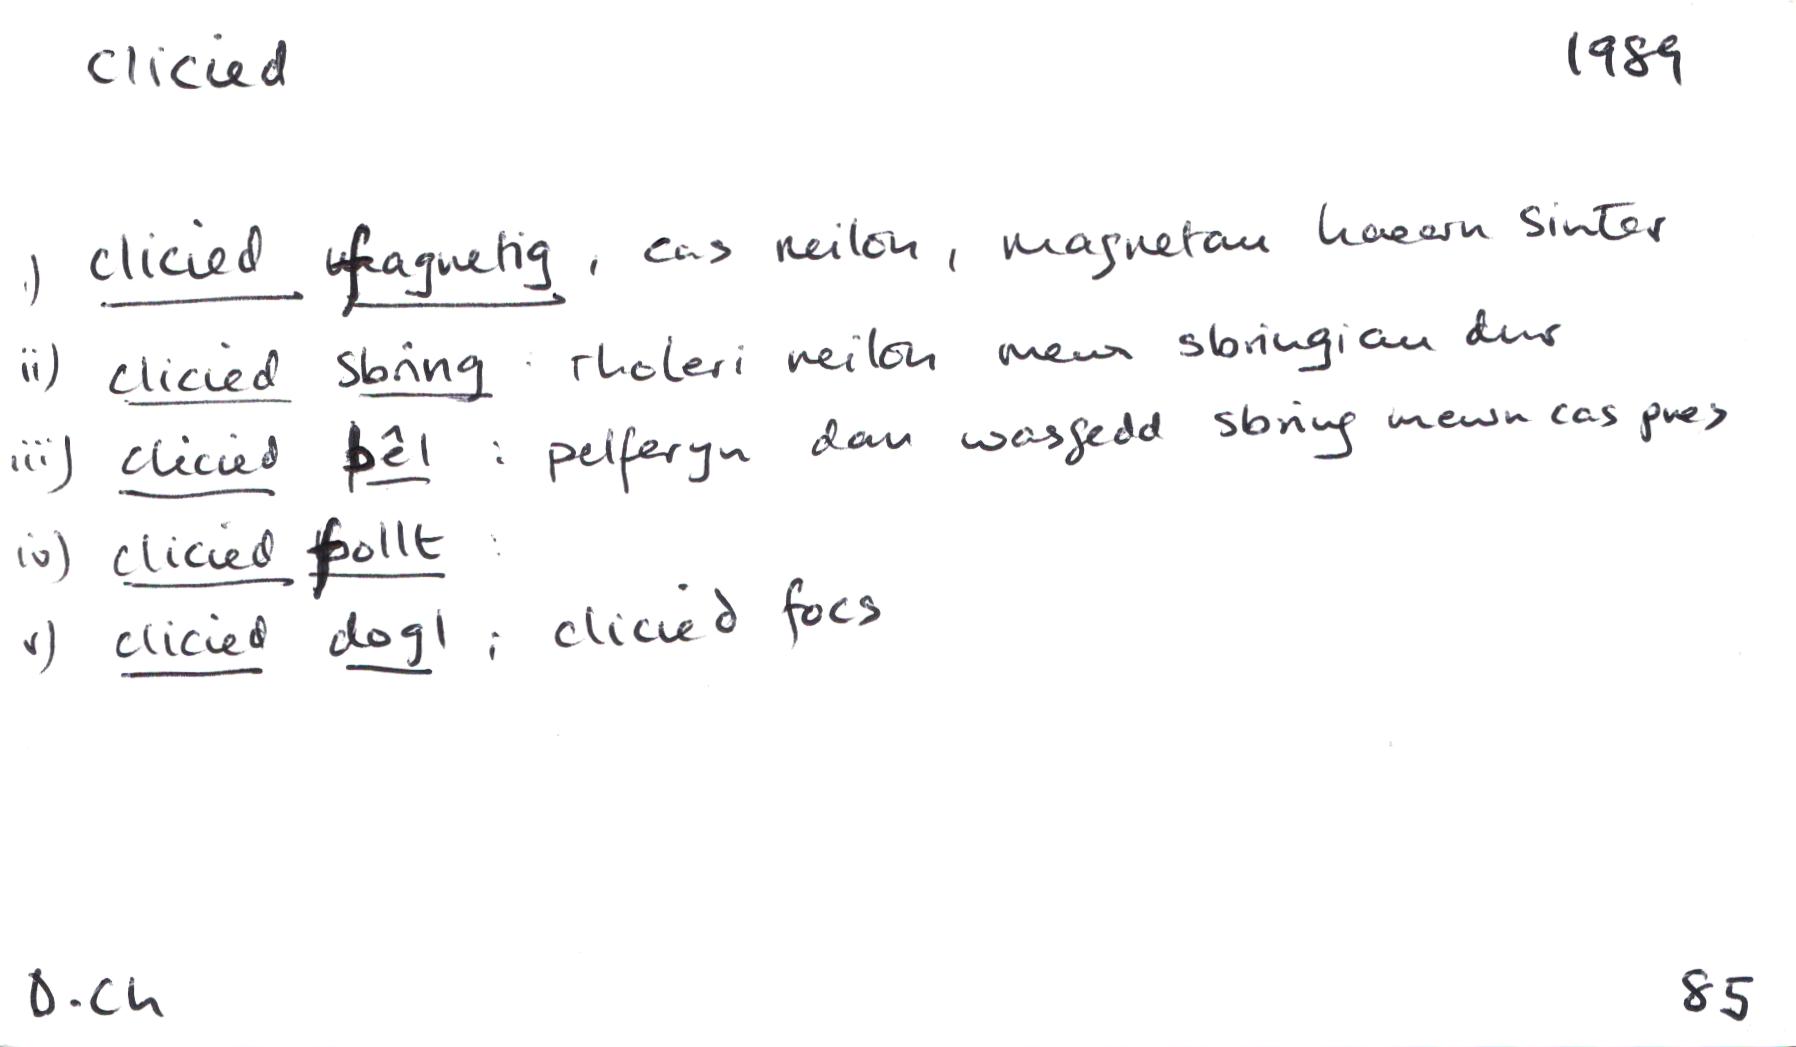 clicied 1989
i) clicied fagnetig, cas neilon, magnetau haearn sinter
ii) clicied sbring : rholeri neilon mewn sbringiau dur
iii) clicied bêl : pelferyn dan wasgedd sbring mewn cas pres
iv) clicied follt :
v) clicied dogl ; clicied focs
D.Ch 85